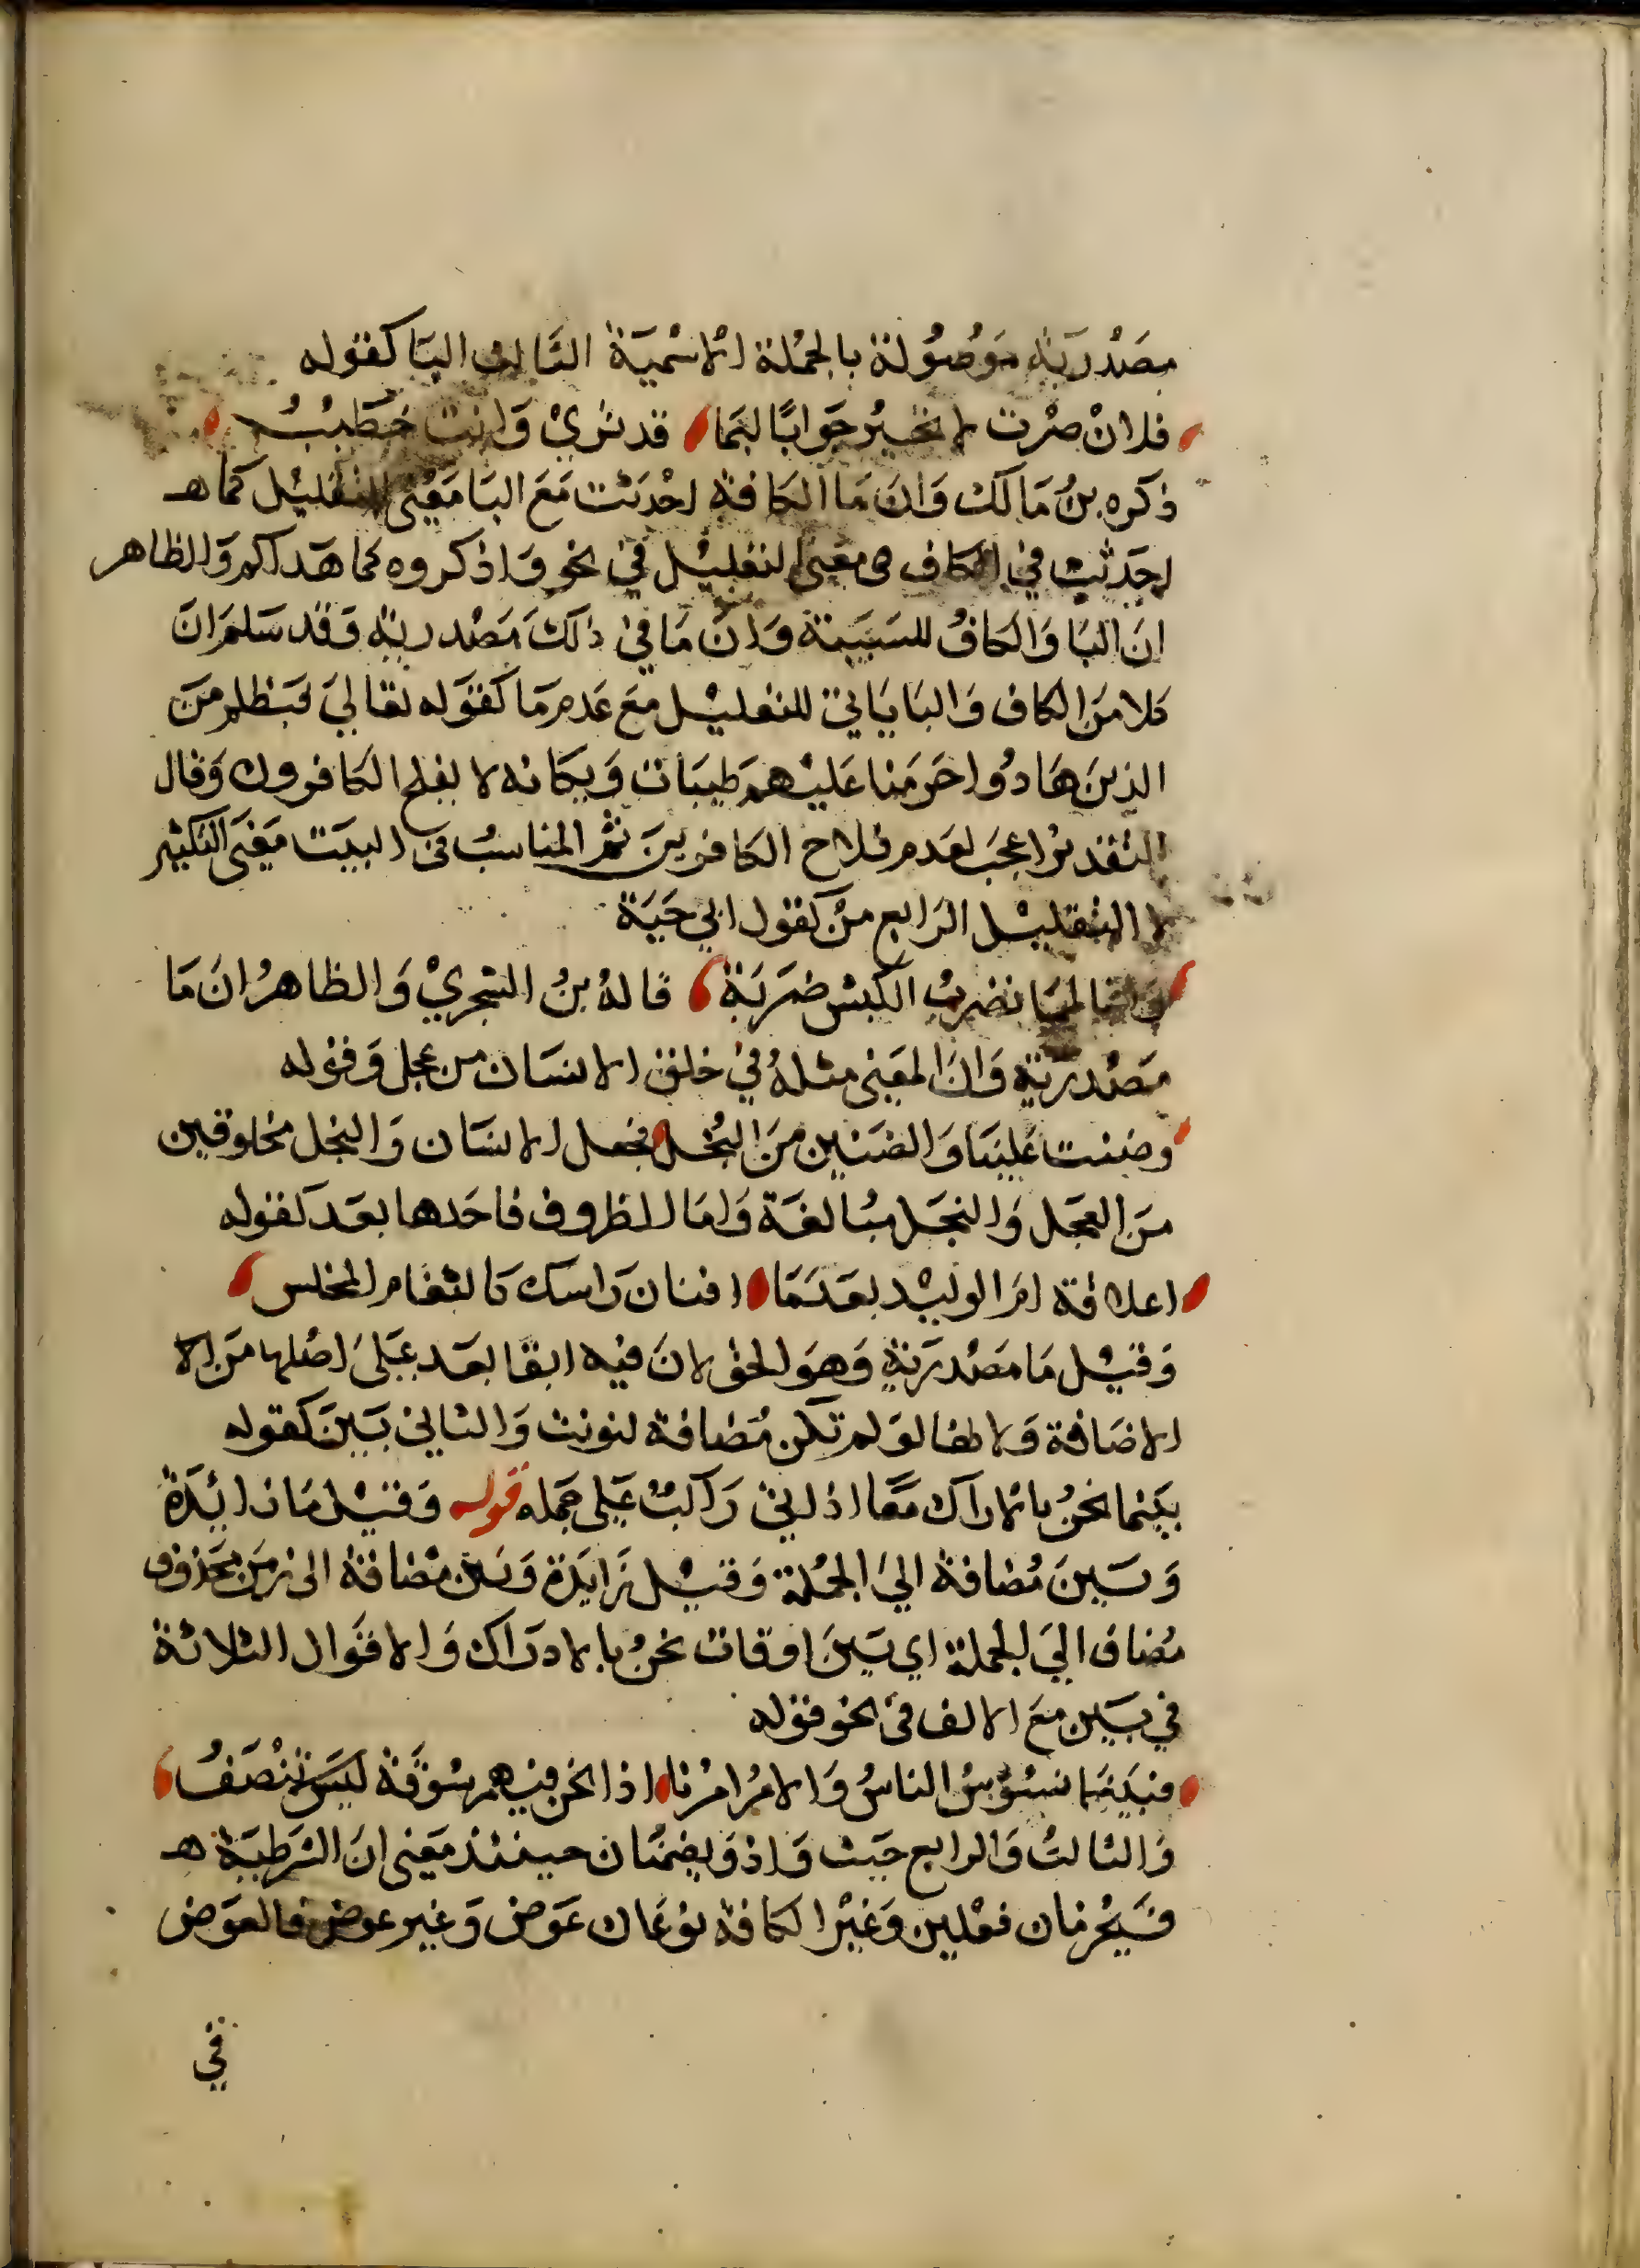 مصدرية موصولة بالجملة الاسمية الثالث البا كقوله
فلان صرت لا تحير جوابا لبما قد تري وانت خطيب
ذكره بن مالك وان ما الكافة احدثت مع البا معني التقليل كما هـ
احدثت في الكاف معني التعليل في نحو واذكروه كما هداكم والظاهر
ان البا والكاف للسببية وان ما في ذلك مصدرية وقد سلم ان
كلا من الكاف والبا ياتي للتعليل مع عدم ما كقوله تعالي فبظلم من
الذين هادوا حرمنا عليهم طيبات ويكانه لا يفلح الكافرون وقال
التقدير اعجب لعدم فلاح الكافرين ثم المناسب في البيت معني التكثير
لا التقليل الرابع من كقول ابي حية
وانا لمما نضرب الكبش ضربة قاله بن الشجري والظاهر ان ما
مصدرية وان المعني مثله في خلق الانسان من عجل وقوله
وضنت علينا والضنين من البخل فجعل الانسان والبخل مخلوقين
من العجل والبخل مبالغة واما الظروف فاحدها بعد كقوله
اعلاقة ام الوليد بعدما افنان راسك كالثغام المخلس
وقيل ما مصدرية وهو الحق لان فيه ابقا بعد علي اصلها من الا
الاضافة ولانها لو لم تكن مضافة لنونت والثاني بين كقوله
بينما نحن بالاراك معا اذ اتي راكب علي جمله قوله وقيل ما زائدة
وبين مضافة الي الجملة وقيل زايدة وبين مضافة الي زمن محذوف
مضاف الي الجملة اي بين اوقات نحن بالادراك والاقوال الثلاثة
في بين مع الالف في نحو قوله
فبينما نسوس الناس والامر امرنا اذا نحن فيهم سوقة ليس ننصف
والثالث والرابع حيث واذ ويضمنان حينئذ معني ان الشرطية هـ
فيجزمان فعلين وغير الكافة نوعان عوض وغير عوض فالعوض
في